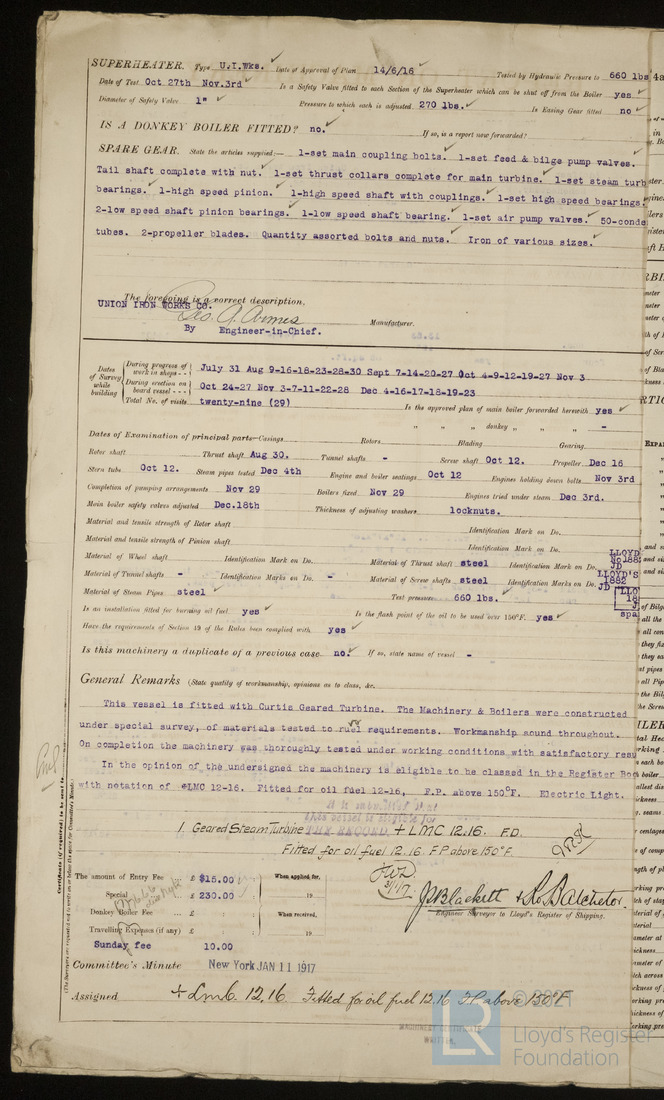 SUPERHEATER. Type U.I.Wks. Date of Approval of Plan 14/6/16 Tested by Hydraulic Pressure to 660 lbs
Date of Test Oct 27th Nov.3rd Is a Safety Valve fitted to each Section of the Superheater which can be shut off from the Boiler yes
Diameter of Safety Valve 1" Pressure to which each is adjusted 270 lbs. Is Easing Gear fitted no
IS A DONKEY BOILER FITTED? no. If so, is a report now forwarded?
SPARE GEAR. State the articles supplied:— 1-set main coupling bolts. 1-set feed & bilge pump valves.
Tail shaft complete with nut. 1-set thrust collars complete for main turbine. 1-set steam turb
bearings. 1-high speed pinion. 1-high speed shaft with couplings. 1-set high speed bearings.
2-low speed shaft pinion bearings. 1-low speed shaft bearing. 1-set air pump valves. 50-conde
tubes. 2-propeller blades. Quantity assorted bolts and nuts. Iron of various sizes.
The foregoing is a correct description,
UNION IRON WORKS CO.
Manufacturer.
By Engineer-in-Chief.
Dates of Survey while building
During progress of work in shops - - July 31 Aug 9-16-18-23-28-30 Sept 7-14-20-27 Oct 4-9-12-19-27 Nov 3
During erection on board vessel - - - Oct 24-27 Nov 3-7-11-22-28 Dec 4-16-17-18-19-23
Total No. of visits twenty-nine (29) Is the approved plan of main boiler forwarded herewith yes
" " " donkey " " " -
Dates of Examination of principal parts—Casings Rotors Blading Gearing
Rotor shaft Thrust shaft Aug 30. Tunnel shafts - Screw shaft Oct 12. Propeller Dec 16
Stern tube Oct 12. Steam pipes tested Dec 4th Engine and boiler seatings Oct 12 Engines holding down bolts Nov 3rd
Completion of pumping arrangements Nov 29 Boilers fixed Nov 29 Engines tried under steam Dec 3rd.
Main boiler safety valves adjusted Dec.18th Thickness of adjusting washers locknuts.
Material and tensile strength of Rotor shaft Identification Mark on Do.
Material and tensile strength of Pinion shaft Identification Mark on Do.
Material of Wheel shaft Identification Mark on Do. Material of Thrust shaft steel Identification Mark on Do. LLOYD No188 JD
Material of Tunnel shafts - Identification Marks on Do. - Material of Screw shafts steel Identification Marks on Do. LLOYD'S 1882 JD
Material of Steam Pipes steel Test pressure 660 lbs.
Is an installation fitted for burning oil fuel yes Is the flash point of the oil to be used over 150°F. yes
Have the requirements of Section 49 of the Rules been complied with yes
Is this machinery a duplicate of a previous case no. If so, state name of vessel -
General Remarks (State quality of workmanship, opinions as to class, &c.
This vessel is fitted with Curtis Geared Turbine. The Machinery & Boilers were constructed
under special survey, of materials tested to ruel requirements. Workmanship sound throughout.
On completion the machinery was thoroughly tested under working conditions with satisfactory resu
In the opinion of the undersigned the machinery is eligible to be classed in the Register Boo
with notation of +LMC 12-16. Fitted for oil fuel 12-16, F.P. above 150°F. Electric Light.
1 Geared Steam Turbine + LMC 12.16. F.D.
Fitted for oil fuel 12.16. F.P. above 150°F.
The amount of Entry Fee £ $15.00 When applied for,
Special £ 230.00 19
Donkey Boiler Fee £ When received,
Travelling Expenses (if any) £ 19
Sunday fee 10.00
J. Blackett & R. Batchelor.
Engineer Surveyor to Lloyd's Register of Shipping.
Committee's Minute New York JAN 11 1917
Assigned + Lmc 12.16 Fitted for oil fuel 12.16 F.P. above 150°F.
MACHINERY CERTIFICATE
WRITTEN.
LR
© 2021
Lloyd's Register
Foundation